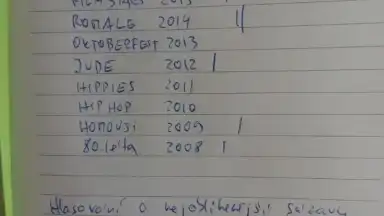 2013
ROMALE 2014 ||
OKTOBERFEST 2013
JUDE 2012 |
HIPPIES 2011
HIP HOP 2010
HOMOUŠI 2009 |
80. léta 2008 |
Hlasování o nejoblíbenější